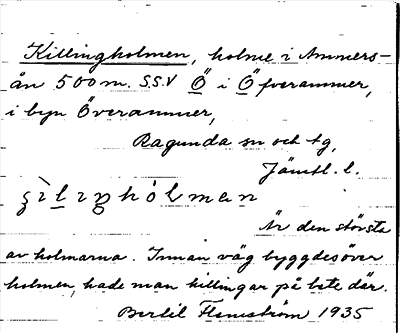 Killingholmen, holme i Ammers-
ån 500 m. S.S.V Ö i Öfverammer,
i byn Överammer,
Ragunda sn och tg,
Jämtl. l.
Är den största
av holmarna. Innan väg byggdes över
holmen, hade man killingar på bete där.
Bertil 1935